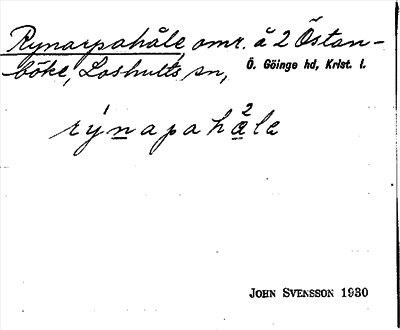 Rynarpahåle, omr. å 2 Östan-
böke, Loshults sn, Ö. Göinge hd, Krist. l.
rýnapahå²le
JOHN SVENSSON 1930